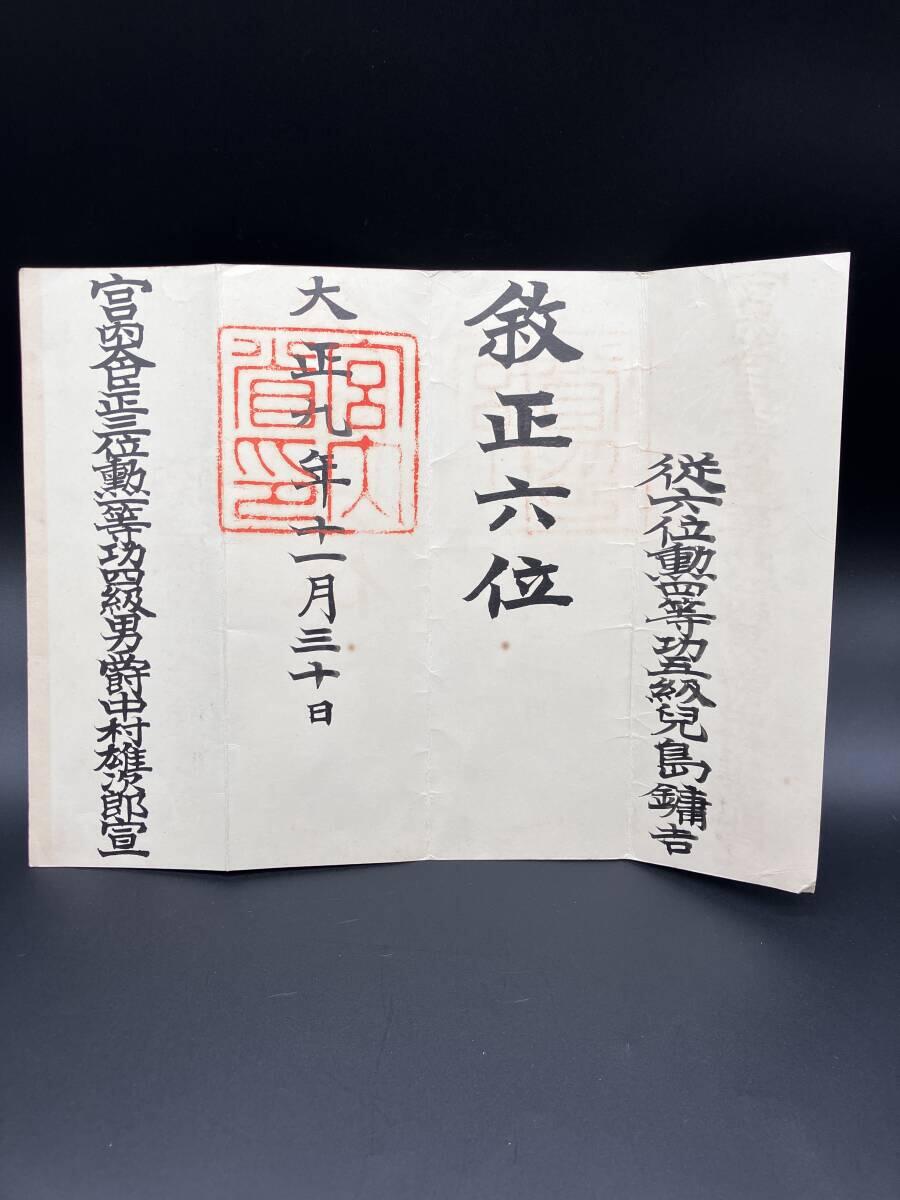 從六位勲四等功五級兒島鏞吉
敘正六位
大正九年十一月三十日
宮内省印
宮内大臣正三位勲一等功四級男爵中村雄次郎宣